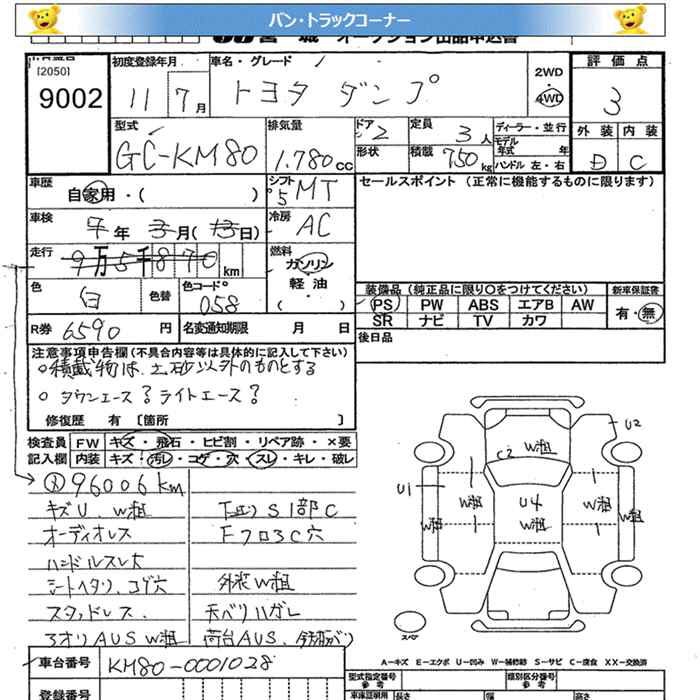 バン・トラックコーナー
宮城 オークション出品申込書
[2050]
9002
初度登録年月
11 7月
車名・グレード
トヨタ ダンプ
2WD
4WD
評価点
3
型式
GC-KM80
排気量
1.780cc
ドア
2
定員
3人
ディーラー・並行
形状
積載
750kg
モデル年式 年
ハンドル 左・右
外装 内装
D C
車歴
自家用・( )
シフト
5MT
セールスポイント (正常に機能するものに限ります)
車検
年 月( 日)
冷房
AC
走行
9万5千870km
燃料
ガソリン
軽油
( )
色
白
色替
色コード
058
装備品(純正品に限り○をつけてください)
新車保証書
PS PW ABS エアB AW
SR ナビ TV カワ
有・無
R券 6590円
名変通知期限 月 日
後日品
注意事項申告欄(不具合内容等は具体的に記入して下さい)
○積載物は土砂以外のものとする
○タウンエース?ライトエース?
修復歴 有 [箇所 ]
検査員 FW キズ・飛石・ヒビ割・リペア跡・×要
記入欄 内装 キズ・汚レ・コゲ・穴・スレ・キレ・破レ
96006km
キズU W粗
下回りS1部C
オーディオレス
Fフロ3C穴
ハンドルスレ大
シートヘタリ、コゲ穴
外装W粗
スタッドレス
天ベリハガレ
3オリAUS W粗
荷台AUS、
U2
C2 W粗
U1
W粗
W粗
U4
W粗
W粗
W粗
スペア
A－キズ E－エクボ U－凹み W－補修跡 S－サビ C－腐食 XX－交換済
車台番号
KM80-0001028
型式指定番号
参考
類別区分番号
参考
登録番号
車庫証明用
長さ
幅
高さ